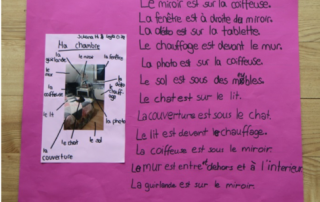 Ma chambre
le miroir
la fenêtre
la guirlande
le mur
la coiffeuse
le chauffage
le lit
la photo
le chat
le sol
la couverture
Le miroir est sur la coiffeuse.
La fenêtre est à droite du miroir.
La est sur la tablette.
Le chauffage est devant le mur.
La photo est sur la coiffeuse.
Le sol est sous des meubles.
Le chat est sur le lit.
La couverture est sous le chat.
Le lit est devant le chauffage.
La coiffeuse est sous le miroir.
Le mur est entre dehors et à l'interieur
La guirlande est sur le miroir.